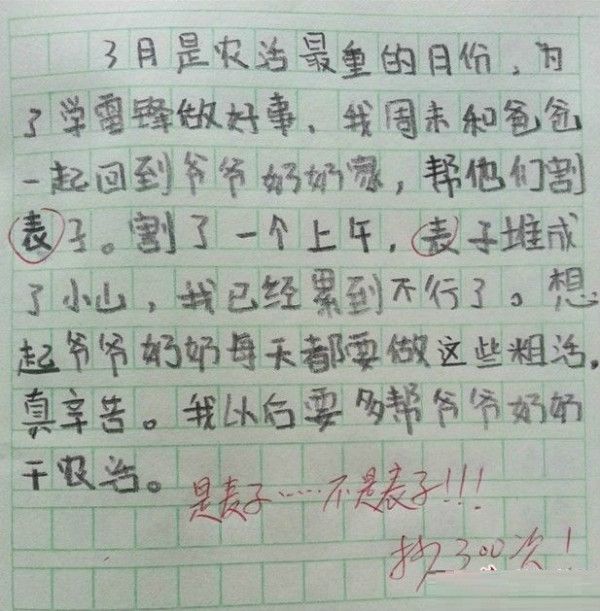 3月是农活最重的月份，为
了学雷锋做好事，我周末和爸爸
一起回到爷爷奶奶家，帮他们割
表子。割了一个上午，表子堆成
了小山，我已经累到不行了。想
起爷爷奶奶每天都要做这些粗活，
真辛苦。我以后要多帮爷爷奶奶
干农活。
是麦子……不是表子!!!
抄300次!